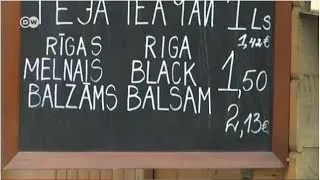 DW
TĒJA TEA ЧАЙ 1 Ls
1,42€
RĪGAS RIGA
MELNAIS BLACK 1,50
BALZĀMS BALSAM
2,13€